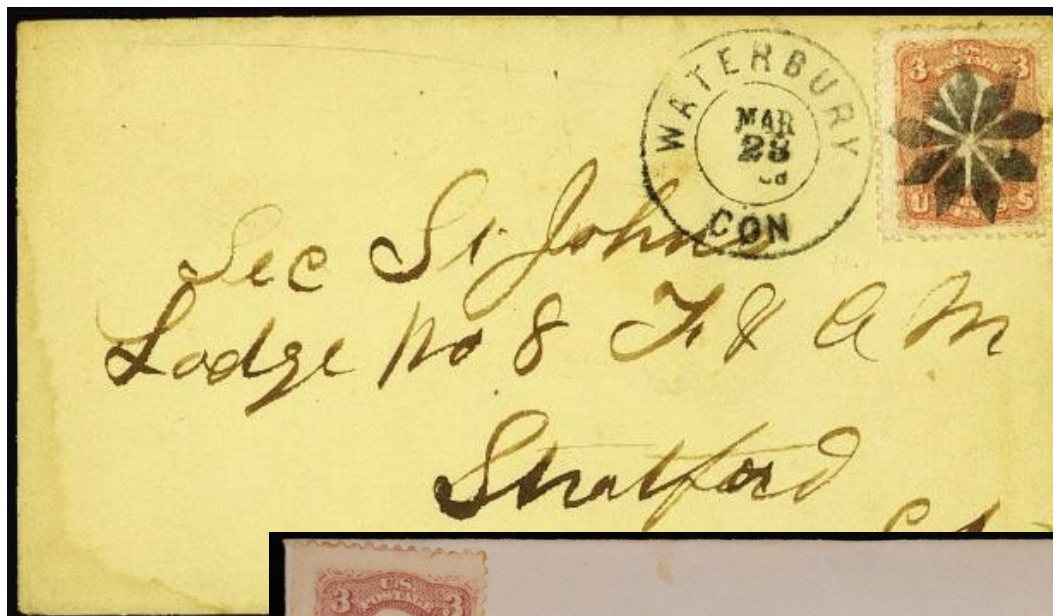 WATERBURY
MAR
23
CON
3 U.S. 3
U S
Sec St Johns
Lodge No 8 F. & A M
Stratford
3 U.S. 3
POSTAGE